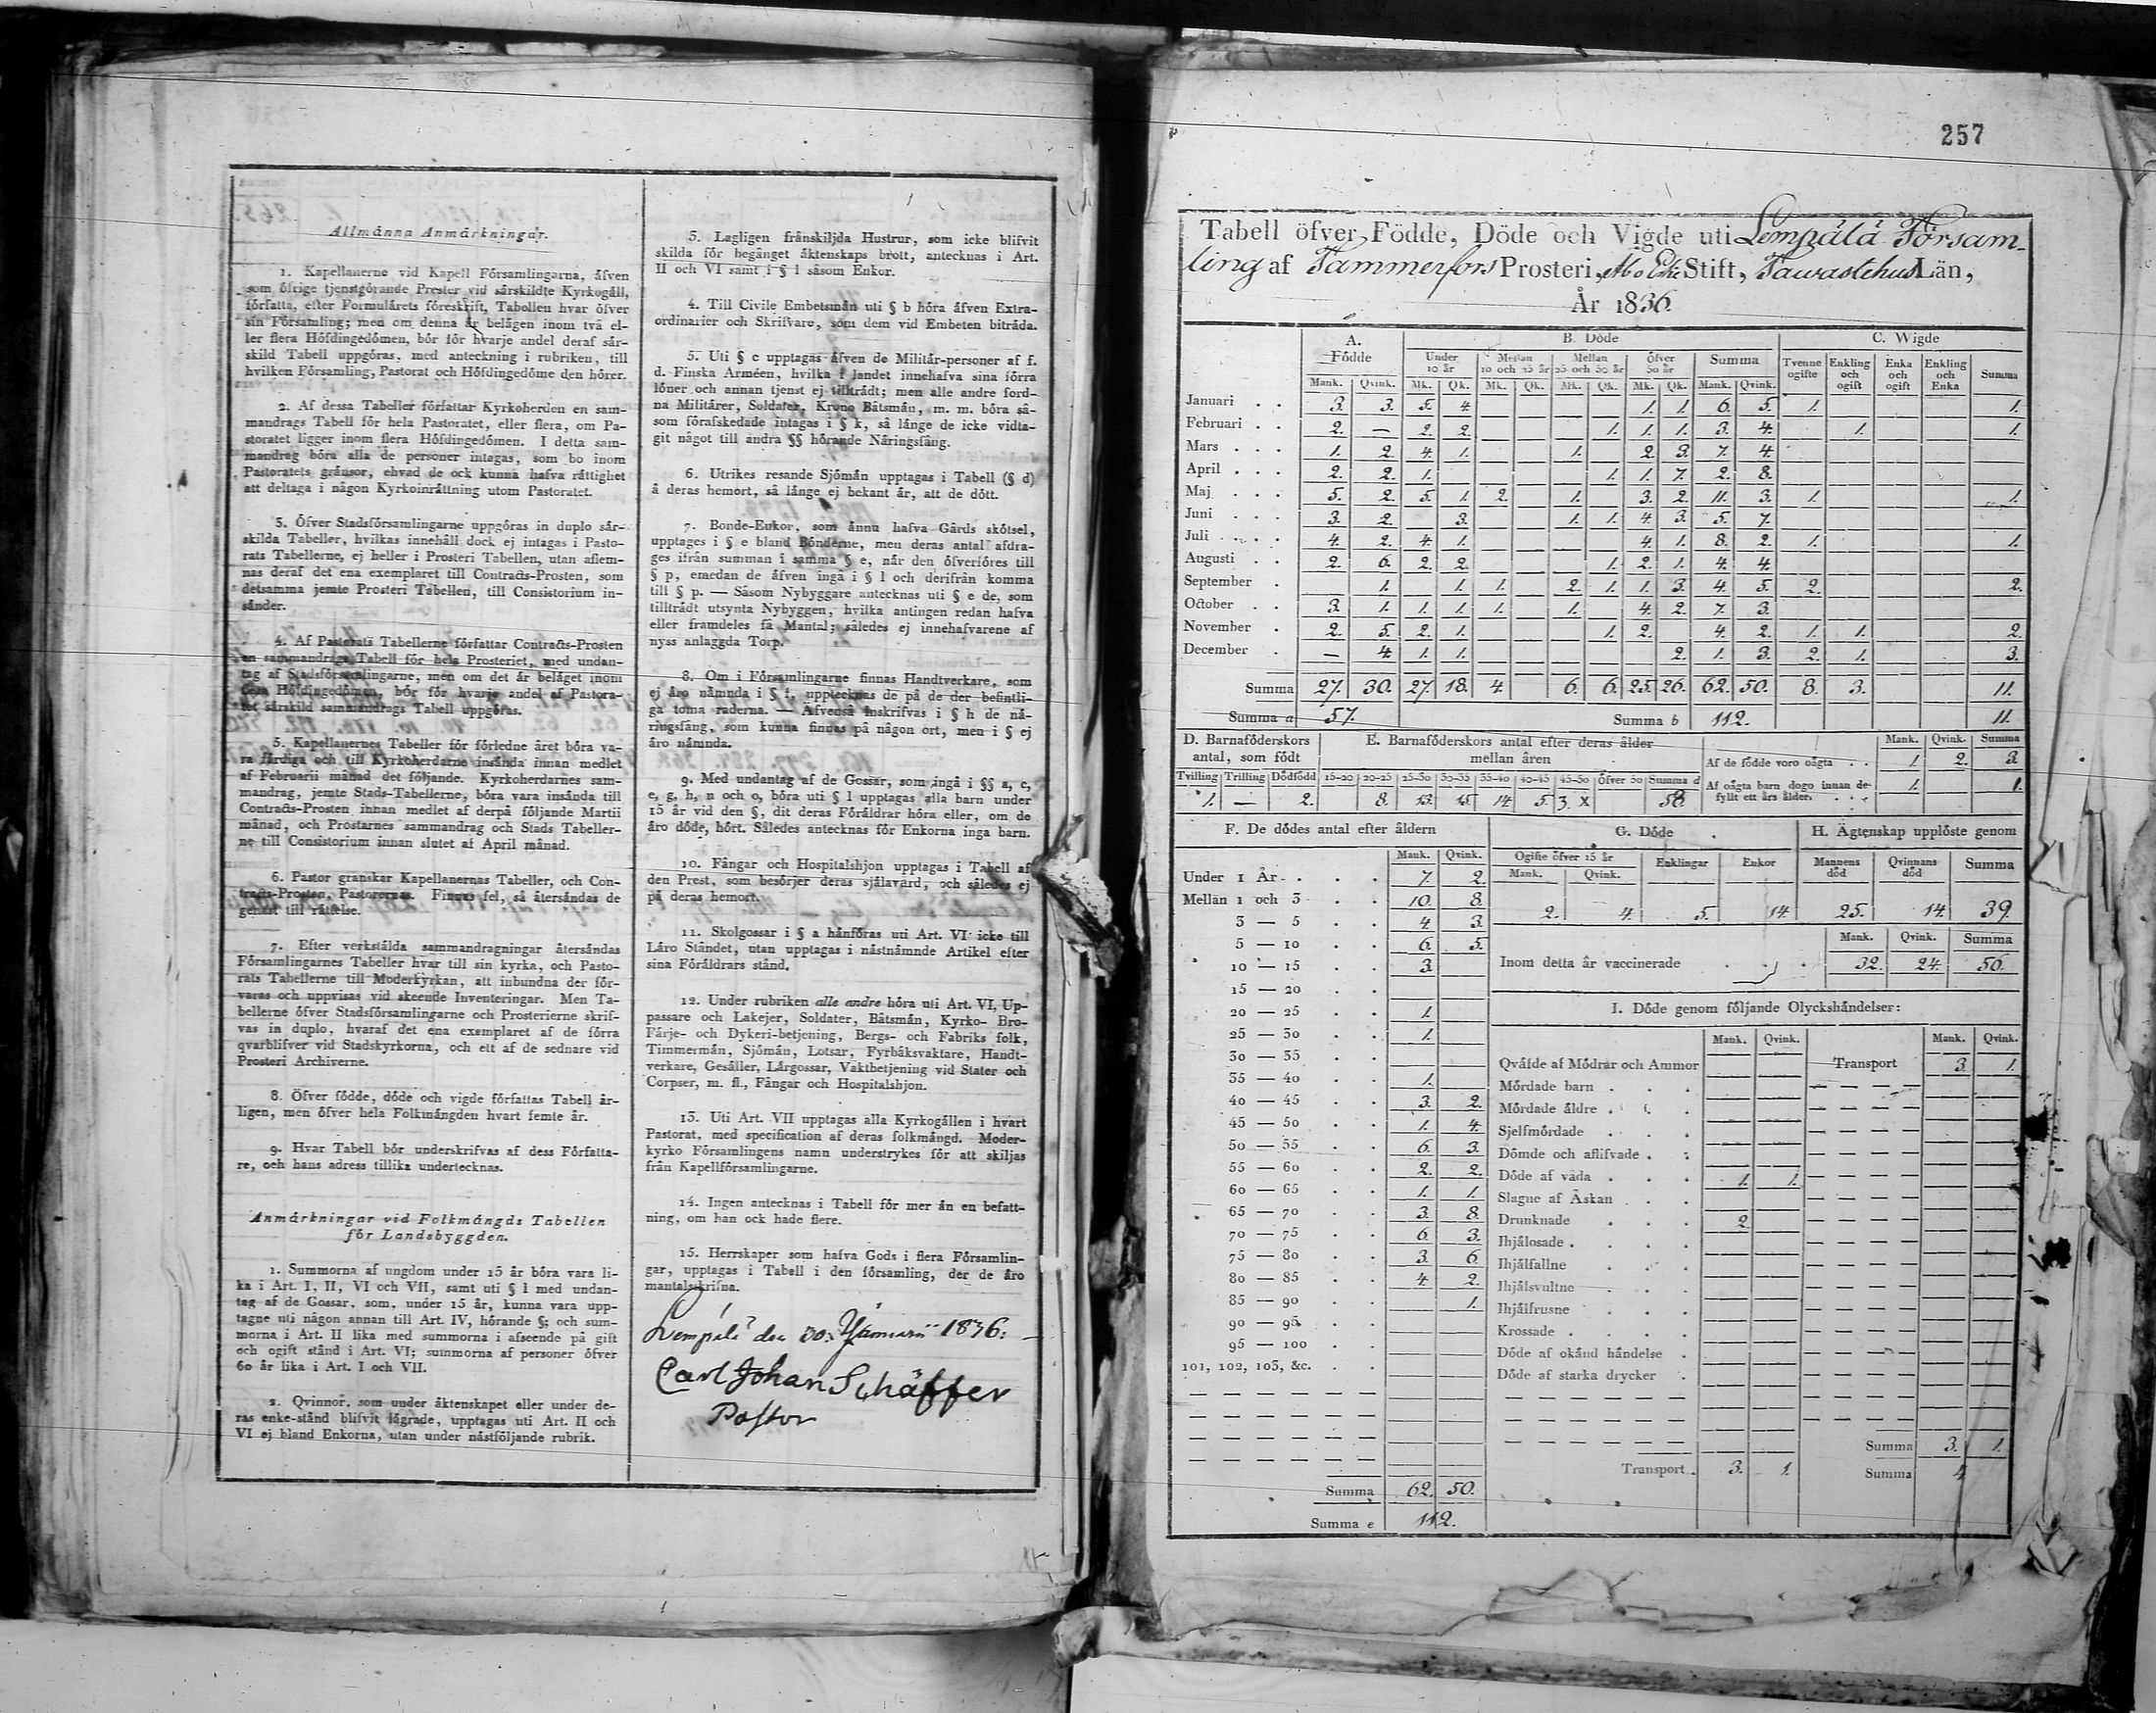 Allmänna Anmärkningar.
1. Kapellanerne vid Kapell Församlingarna, äfven
som öfrige tjenstgörande Prester vid särskildte Kyrkogäll,
författa, efter Formulärets föreskrift, Tabellen hvar öfver
sin Församling; men om denna är belägen inom två el-
ler flera Höfdingedömen, bör för hvarje andel deraf sär-
skild Tabell uppgöras, med anteckning i rubriken, till
hvilken Församling, Pastorat och Höfdingedöme den hörer.
2. Af dessa Tabeller författar Kyrkoherden en sam-
mandrags Tabell för hela Pastoratet, eller flera, om Pa-
storatet ligger inom flera Höfdingedömen. I detta sam-
mandrag böra alla de personer intagas, som bo inom
Pastoratets gränsor, ehvad de ock kunna hafva rättighet
att deltaga i någon Kyrkoinrättning utom Pastoratet.
3. Öfver Stadsförsamlingarne uppgöras in duplo sär-
skilda Tabeller, hvilkas innehåll dock ej intagas i Pasto-
rats Tabellerne, ej heller i Prosteri Tabellen, utan aflem-
nas deraf det ena exemplaret till Contracts-Prosten, som
detsamma jemte Prosteri Tabellen, till Consistorium in-
sänder.
4. Af Pastorats Tabellerne författar Contracts-Prosten
en sammandrags Tabell för hela Prosteriet, med undan-
tag af Stadsförsamlingarne, men om det är beläget inom
flera Höfdingedömen, bör för hvarje andel af Pastora-
tet särskild sammandrags Tabell uppgöras.
5. Kapellanernes Tabeller för förledne året böra va-
ra färdiga och till Kyrkoherdarne insända innan medlet
af Februarii månad det följande. Kyrkoherdarnes sam-
mandrag, jemte Stads-Tabellerne, böra vara insända till
Contracts-Prosten innan medlet af derpå följande Martii
månad, och Prostarnes sammandrag och Stads Tabeller-
ne till Consistorium innan slutet af April månad.
6. Pastor granskar Kapellanernas Tabeller, och Con-
tracts-Prosten, Pastorernas. Finnas fel, så återsändas de
genast till rättelse.
7. Efter verkstälda sammandragningar återsändas
Församlingarnes Tabeller hvar till sin kyrka, och Pasto-
rats Tabellerne till Moderkyrkan, att inbundna der för-
varas och uppvisas vid skeende Inventeringar. Men Ta-
bellerne öfver Stadsförsamlingarne och Prosterierne skrif-
vas in duplo, hvaraf det ena exemplaret af de förra
qvarblifver vid Stadskyrkorna, och ett af de sednare vid
Prosteri Archiverne.
8. Öfver födde, döde och vigde författas Tabell år-
ligen, men öfver hela Folkmängden hvart femte år.
9. Hvar Tabell bör underskrifvas af dess Författa-
re, och hans adress tillika undertecknas.
Anmärkningar vid Folkmängds Tabellen
för Landsbyggden.
1. Summorna af ungdom under 15 år böra vara li-
ka i Art. I, II, VI och VII, samt uti § l med undan-
tag af de Gossar, som, under 15 år, kunna vara upp-
tagne uti någon annan till Art. IV, hörande §; och sum-
morna i Art. II lika med summorna i afseende på gift
och ogift stånd i Art. VI; summorna af personer öfver
60 år lika i Art. I och VII.
2. Qvinnor, som under äktenskapet eller under de-
ras enke-stånd blifvit lägrade, upptagas uti Art. II och
VI ej bland Enkorna, utan under nästföljande rubrik.
3. Lagligen frånskiljda Hustrur, som icke blifvit
skilda för begånget äktenskaps brott, antecknas i Art.
II och VI samt i § l såsom Enkor.
4. Till Civile Embetsmän uti § b höra äfven Extra-
ordinarier och Skrifvare, som dem vid Embeten biträda.
5. Uti § c upptagas äfven de Militär-personer af f.
d. Finska Arméen, hvilka i landet innehafva sina förra
löner och annan tjenst ej tillträdt; men alle andre ford-
na Militärer, Soldater, Krono Båtsmän, m. m. böra så-
som förafskedade intagas i § k, så länge de icke vidta-
git något till andra §§ hörande Näringsfång.
6. Utrikes resande Sjömän upptagas i Tabell (§ d)
å deras hemort, så länge ej bekant är, att de dött.
7. Bonde-Enkor, som ännu hafva Gårds skötsel,
upptages i § e bland Bönderne, men deras antal afdra-
ges ifrån summan i samma § e, når den öfverföres till
§ p, emedan de äfven ingå i § l och derifrån komma
till § p. — Såsom Nybyggare antecknas uti § e de, som
tillträdt utsynta Nybyggen, hvilka antingen redan hafva
eller framdeles få Mantal; således ej innehafvarene af
nyss anlaggda Torp.
8. Om i Församlingarne finnas Handtverkare, som
ej äro nämnda i § f, upptecknas de på de der befintli-
ga toma raderna. — Äfvenså inskrifvas i § h de nä-
ringsfång, som kunna finnas på någon ort, men i § ej
äro nämnda.
9. Med undantag af de Gossar, som ingå i §§ a, c,
e, g, h, n och o, böra uti § l upptagas alla barn under
15 år vid den §, dit deras Föräldrar höra eller, om de
äro döde, hört. Således antecknas för Enkorna inga barn.
10. Fångar och Hospitalshjon upptagas i Tabell af
den Prest, som besörjer deras själavård, och således ej
på deras hemort.
11. Skolgossar i § a hänföras uti Art. VI icke till
Läro Ståndet, utan upptagas i nästnämnde Artikel efter
sina Föräldrars stånd.
12. Under rubriken alle andre höra uti Art. VI, Up-
passare och Lakejer, Soldater, Båtsmän, Kyrko- Bro-
Färje- och Dykeri-betjening, Bergs- och Fabriks folk,
Timmermän, Sjömän, Lotsar, Fyrbåksvaktare, Handt-
verkare, Gesäller, Lärgossar, Vaktbetjening vid Stater och
Corpser, m. fl., Fångar och Hospitalshjon.
13. Uti Art. VII upptagas alla Kyrkogällen i hvart
Pastorat, med specification af deras folkmängd. Moder-
kyrko Församlingens namn understrykes för att skiljas
från Kapellförsamlingarne.
14. Ingen antecknas i Tabell för mer än en befatt-
ning, om han ock hade flere.
15. Herrskaper som hafva Gods i flera Församlin-
gar, upptagas i Tabell i den församling, der de äro
mantalsskrifna.
Lempälä den 30: Januarii 1836:
Carl Johan Schäffer
Pastor
257
Tabell öfver Födde, Döde och Vigde uti Lempälä Försam-
ling af Tammerfors Prosteri, Åbo Erke Stift, Tawastehus Län,
År 1836.
A. Födde B. Döde C. Wigde
Under 10 år Mellan 10 och 25 år Mellan 25 och 50 år Öfver 50 år Summa Tvenne ogifte Enkling och ogift Enka och ogift Enkling och Enka Summa
Mank. Qvink. Mk. Qk. Mk. Qk. Mk. Qk. Mk. Qk. Mank. Qvink.
Januari . . 3. 3. 5. 4. 1. 1. 6. 5. 1. 1.
Februari . . 2. — 2. 2. 1. 1. 1. 3. 4. 1. 1.
Mars . . . 1. 2. 4. 1. 1. 2. 3. 7. 4.
April . . . 2. 2. 1. 1. 1. 7. 2. 8.
Maj . . . 5. 2. 5. 1. 2. 1. 3. 2. 11. 3. 1. 1.
Juni . . . 3. 2. 3. 1. 1. 4. 3. 5. 7.
Juli . . . 4. 2. 4. 1. 4. 1. 8. 2. 1. 1.
Augusti . . 2. 6. 2. 2. 1. 2. 1. 4. 4.
September . 1. 1. 1. 2. 1. 1. 3. 4. 5. 2. 2.
October . . 3. 1. 1. 1. 1. 1. 4. 2. 7. 3.
November . 2. 5. 2. 1. 1. 2. 4. 2. 1. 1. 2.
December . — 4. 1. 1. 2. 1. 3. 2. 1. 3.
Summa 27. 30. 27. 18. 4. 6. 6. 25. 26. 62. 50. 8. 3. 11.
Summa a 57. Summa b 112. 11.
D. Barnaföderskors antal, som födt
Tvilling Trilling Dödfödd
1. — 2.
E. Barnaföderskors antal efter deras ålder
mellan åren
15-20 20-25 25-30 30-35 35-40 40-45 45-50 Öfver 50 Summa d
8. 13. 15. 14. 5. 3. x 58.
Mank. Qvink. Summa
Af de födde voro oägta . . 1. 2. 3.
Af oägta barn dogo innan de-
fyllt ett års ålder. . . . 1. 1.
F. De dödes antal efter åldern
Mank. Qvink.
Under 1 År . . . 7. 2.
Mellan 1 och 3 . . 10. 8.
3 — 5 . . 4. 3.
5 — 10 . . 6. 5.
10 — 15 . . 3.
15 — 20 . .
20 — 25 . . 1.
25 — 30 . . 1.
30 — 35 . .
35 — 40 . . 1.
40 — 45 . . 3. 2.
45 — 50 . . 1. 4.
50 — 55 . . 6. 3.
55 — 60 . . 2. 2.
60 — 65 . . 1. 1.
65 — 70 . . 3. 8.
70 — 75 . . 6. 3.
75 — 80 . . 3. 6.
80 — 85 . . 4. 2.
85 — 90 . . 1.
90 — 95 . .
95 — 100 . .
101, 102, 103, &c. . .
Summa 62. 50.
Summa e 112.
G. Döde
Ogifte öfver 15 år Enklingar Enkor
Mank. Qvink.
2. 4. 5. 14.
H. Ägtenskap upplöste genom
Mannens död Qvinnans död Summa
25. 14. 39.
Mank. Qvink. Summa
Inom detta år vaccinerade . . . 32. 24. 56.
I. Döde genom följande Olyckshändelser:
Mank. Qvink. Mank. Qvink.
Qväfde af Mödrar och Ammor Transport 3. 1.
Mördade barn . . .
Mördade äldre . . .
Sjelfmördade . . .
Dömde och aflifvade . .
Döde af våda . . . 1. 1.
Slagne af Åskan . .
Drunknade . . . 2.
Ihjälosade . . . .
Ihjälfallne . . .
Ihjälsvultne . . .
Ihjälfrusne . . .
Krossade . . . .
Döde af okänd händelse .
Döde af starka drycker .
Summa 3. 1.
Transport . 3. 1. Summa 4